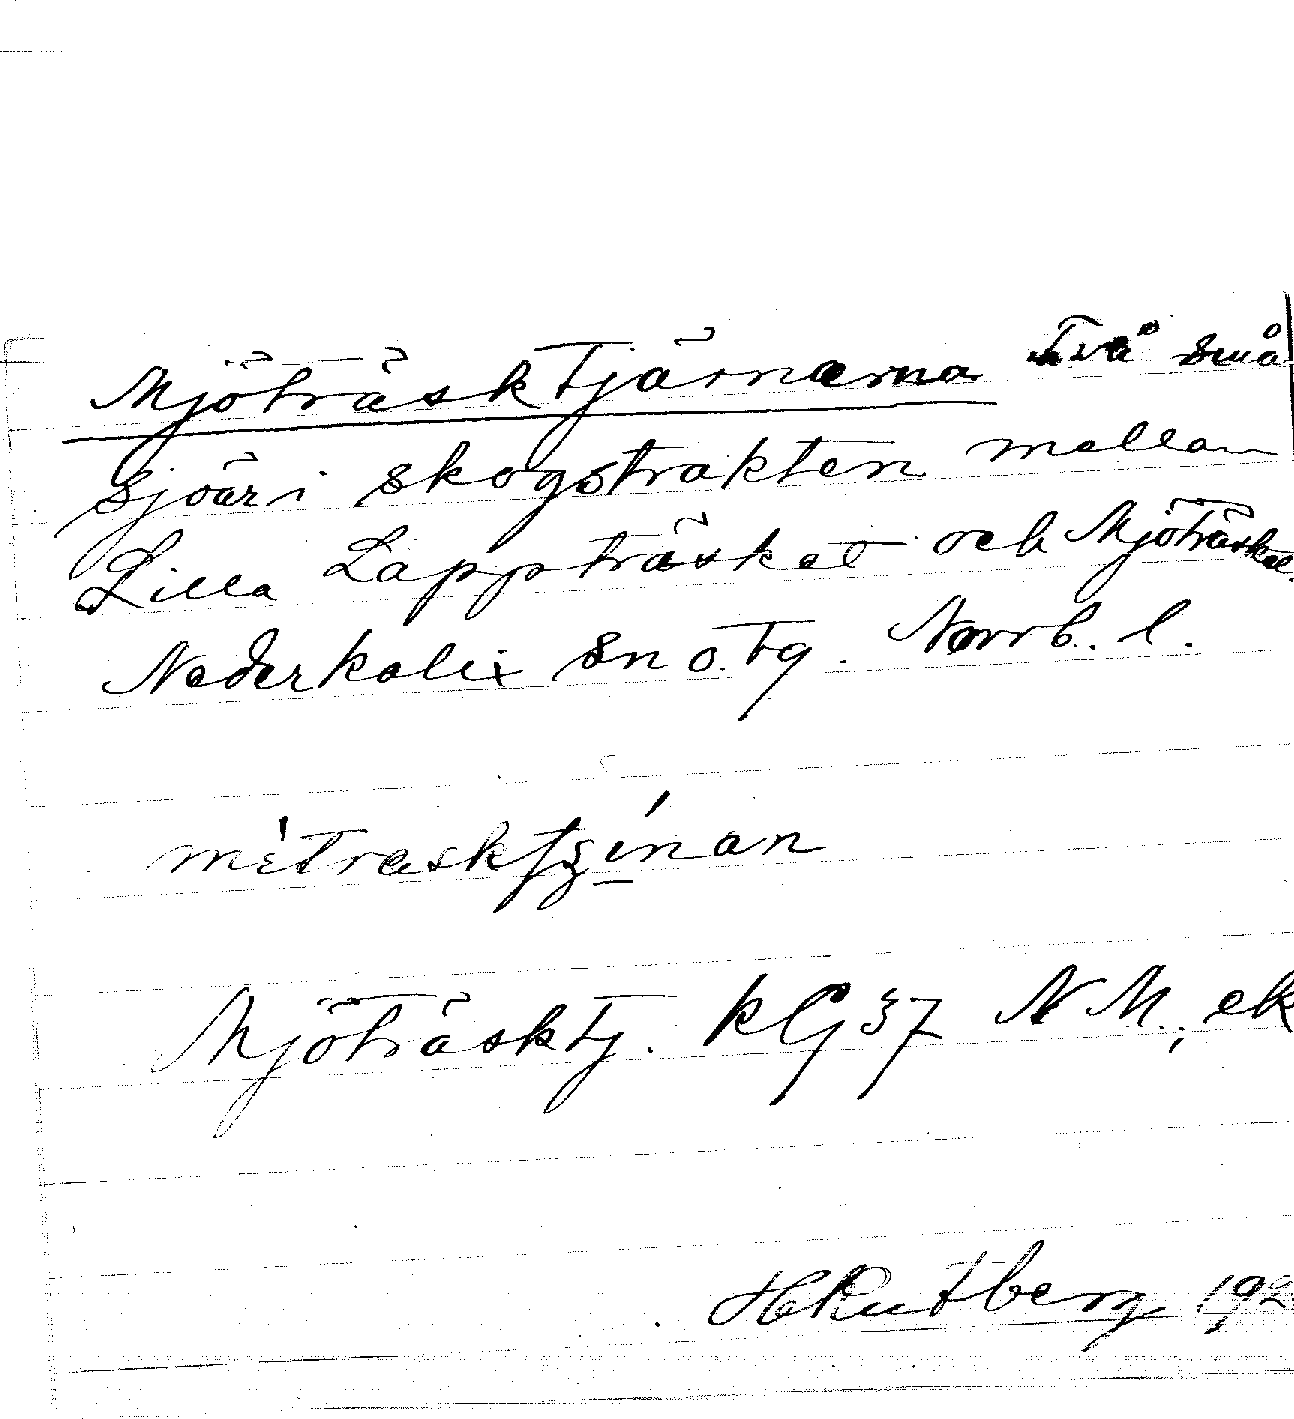 Mjöträsktjärnarna Två små
sjöar i skogstrakten mellan
Lilla Lappträsket och Mjöträsket.
Nederkalix sn o. tg. Norrb. l.
Mjöträsktj. kG 37 N M.; ek
H Rutberg 192